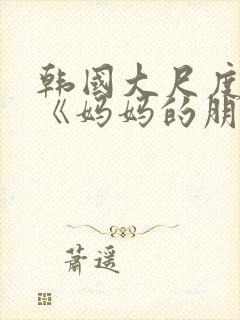 韩国大尺度
《妈妈的朋
萧遥